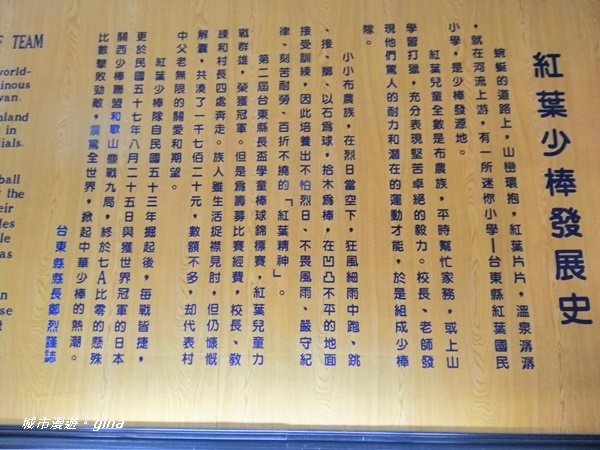 紅葉少棒發展史
蜿蜒的道路上，山巒環抱，紅葉片片，溫泉潺潺
，就在河流上游，有一所迷你小學—台東縣紅葉國民
小學，是少棒發源地。
紅葉兒童全數是布農族，平時幫忙家務，或上山
學習打獵，充分表現堅苦卓絕的毅力。校長、老師發
現他們驚人的耐力和潛在的運動才能，於是組成少棒
隊。
小小布農族，在烈日當空下，狂風細雨中跑、跳
、接、擲、以石為球，拾木為棒，在凹凸不平的地面
接受訓練，因此培養出不怕烈日、不畏風雨、嚴守紀
律、刻苦耐勞、百折不撓的「紅葉精神」。
第二屆台東縣長盃學童棒球錦標賽，紅葉兒童力
戰群雄，榮獲冠軍。但是為籌募比賽經費，校長、教
練和村長四處奔走。族人雖生活捉襟見肘，但仍慷慨
解囊，共湊了一千七佰二十元，數額不多，却代表村
中父老無限的關愛和期望。
紅葉少棒隊自民國五十三年掘起後，每戰皆捷，
更於民國五十七年八月二十五日與獲世界冠軍的日本
關西少棒聯盟和歌山鏖戰九局，終於七A比零的懸殊
比數擊敗勁敵，震驚全世界，掀起中華少棒的熱潮。
台東縣縣長鄭烈謹誌
F TEAM
world-
inous
van.
nland
in
ials.
ball
the
eir
les
le
as
n
se
t
城市漫遊。gina